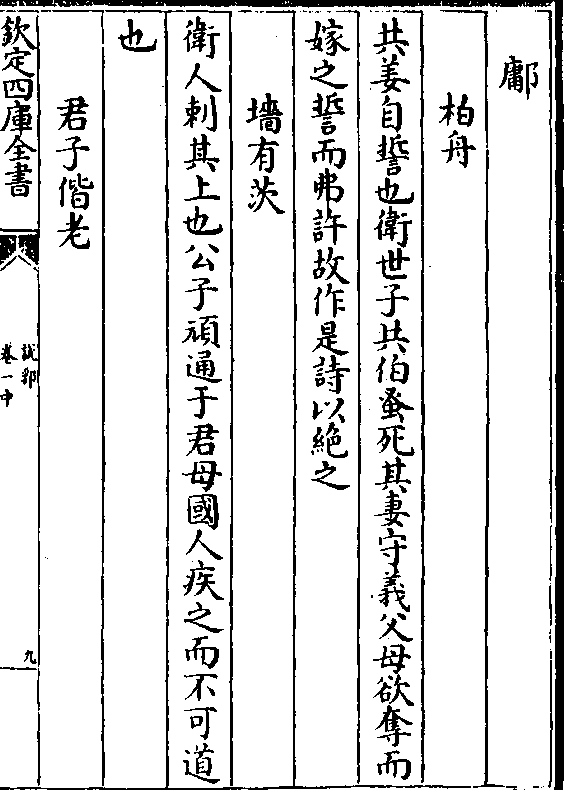 鄘
柏舟
共姜自誓也衛世子共伯蚤死其妻守義父母欲奪而
嫁之誓而弗許故作是詩以絶之
墻有茨
衛人刺其上也公子頑通于君母國人疾之而不可道
也
君子偕老
欽定四庫全書
說郛
卷一中
九